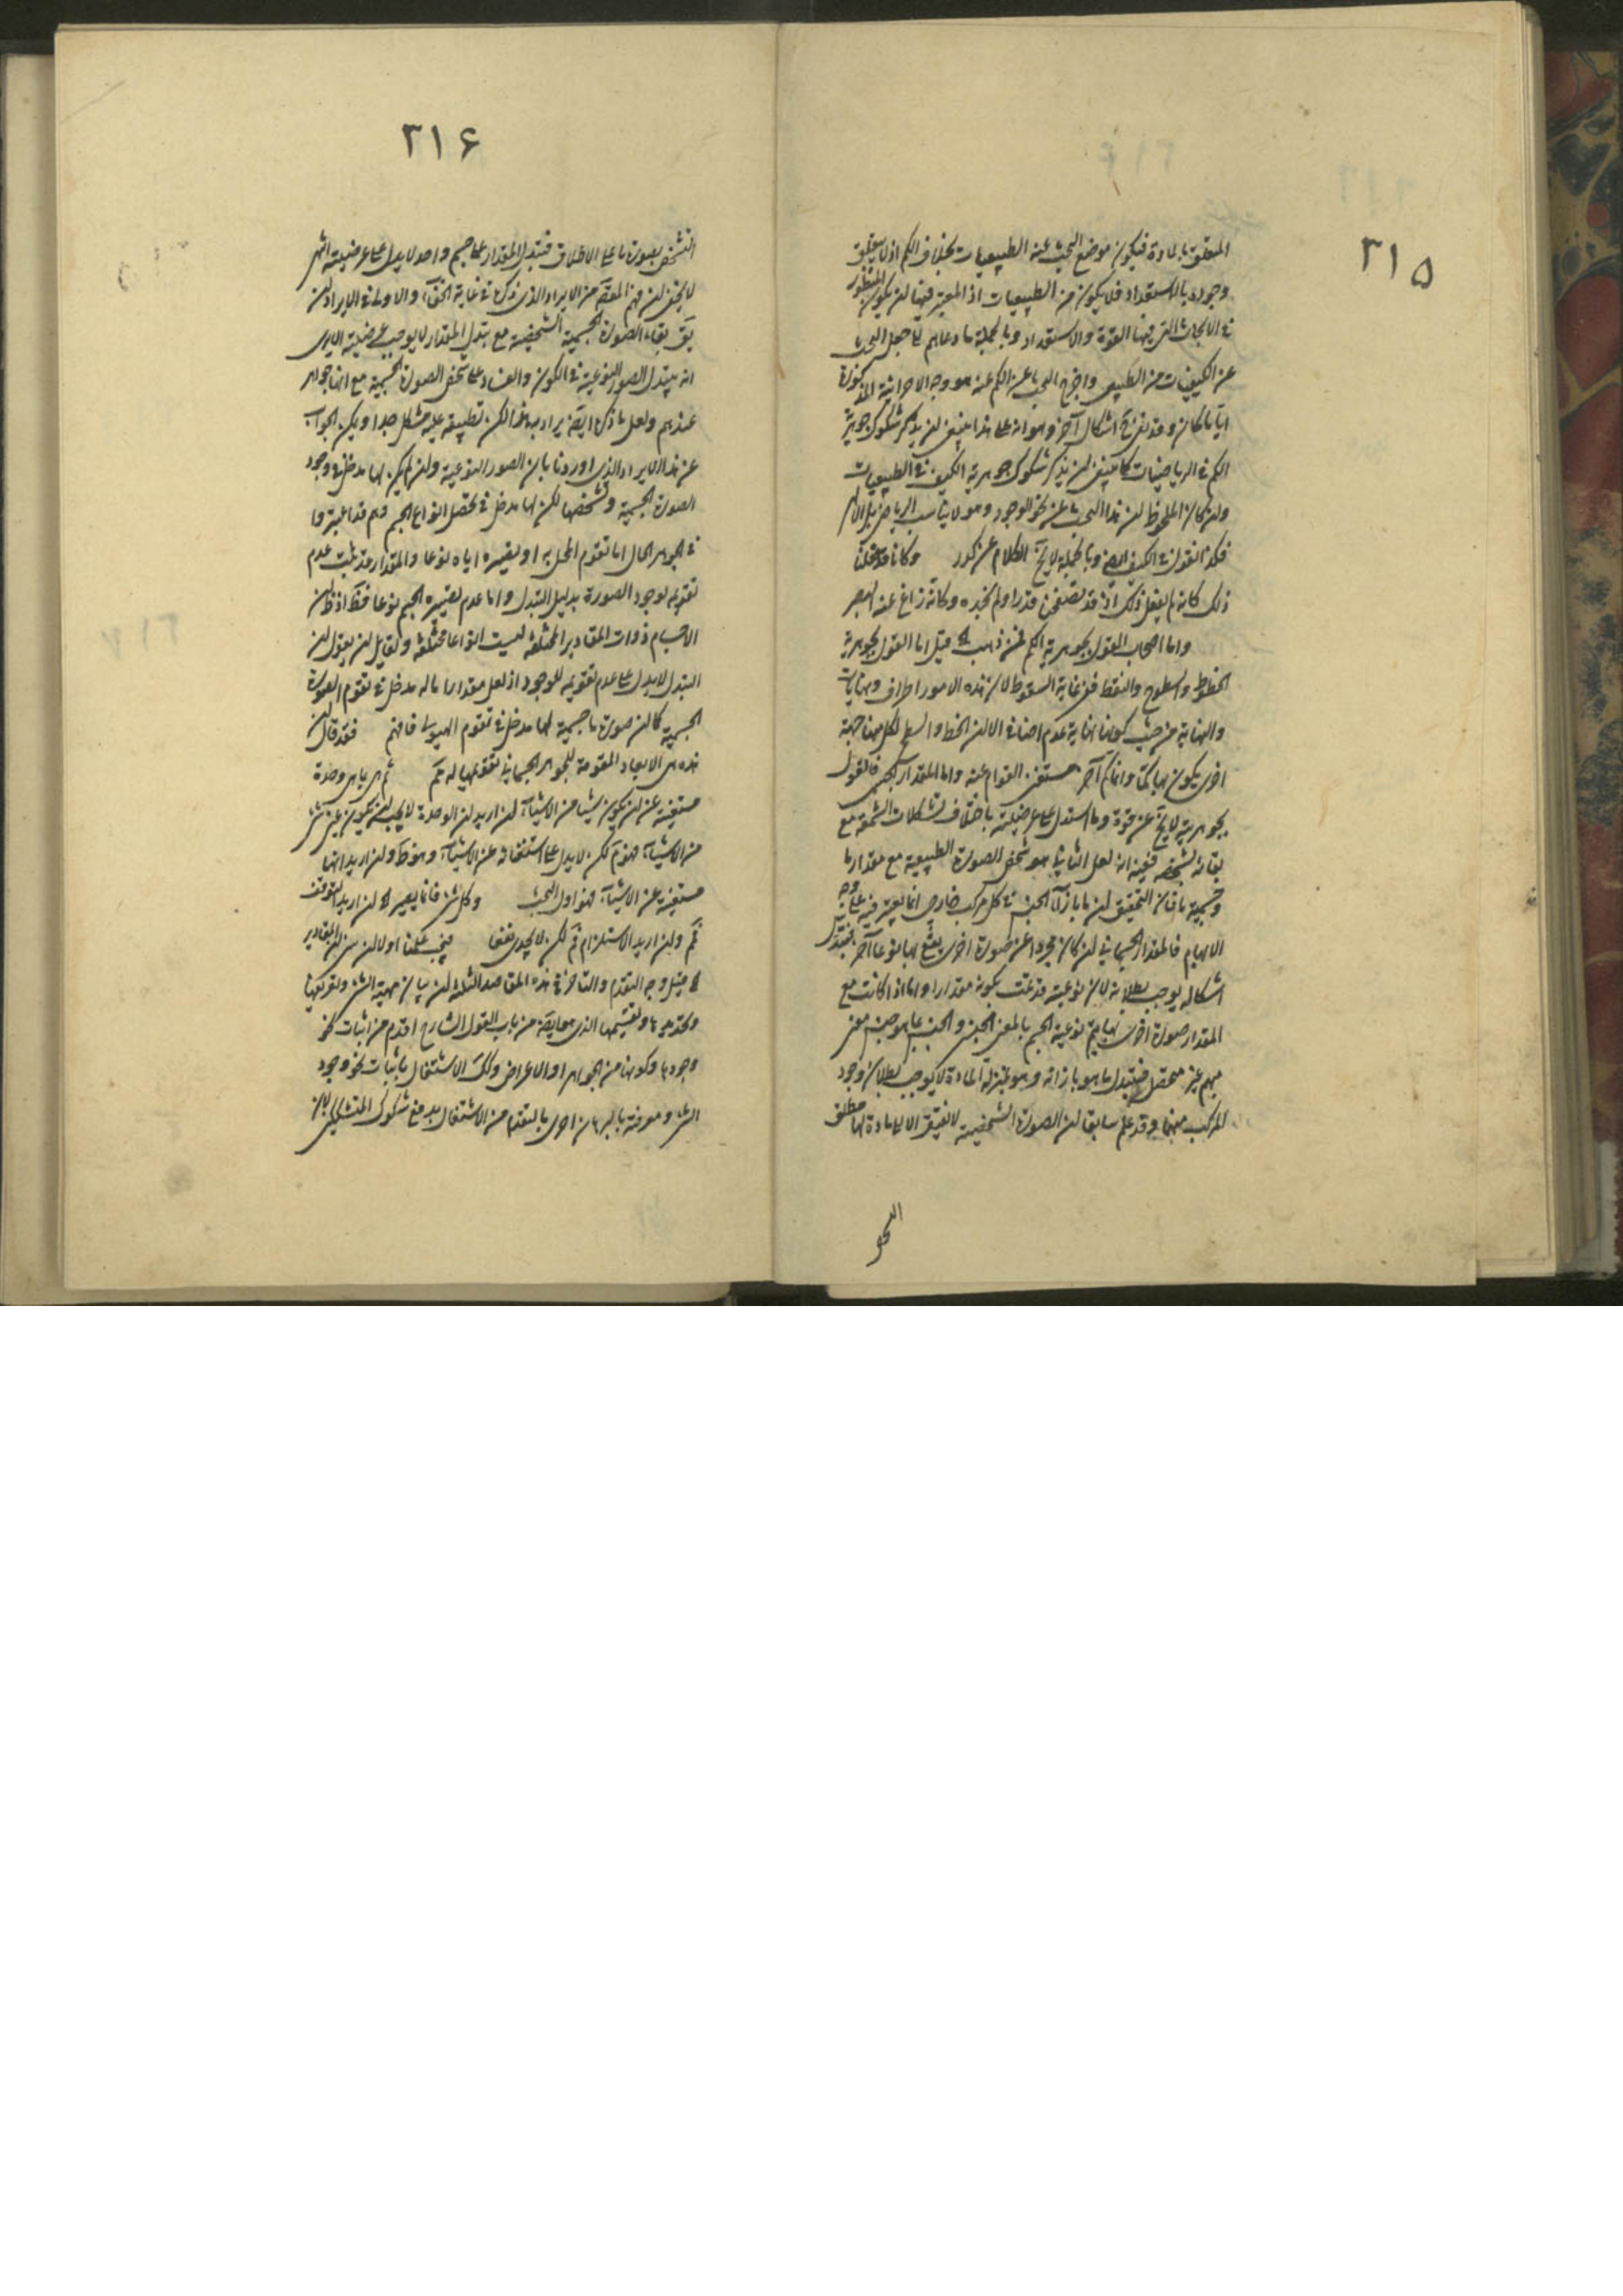 ٣١٥
المتعلق بالمادة فيكون موضع البحث عنه الطبيعيات بخلاف الكم اذ لا يتعلق
وجوده بالاستعداد فلا يكون من الطبيعيات اذ المعتبر فيها لن يكون المنظور
في الابحاث التي فيها القوة والاستعداد وبالجملة ما دعاهم الى جعل البحث
عن الكيفيات من الطبيعي واخرج البحث عن الكم عنه هو وجه الاحرائية المذكورة
ايا ما كان وقد بقي اشكال آخر وهو انه على هذا ينبغي لن يذكر شكوك جوهرية
الكم في الرياضيات كما ينبغي لن يذكر شكوك جوهرية الكيف في الطبيعيات
ولن كان الملحوظ لن هذا البحث عن نحو الوجود وهو لا يناسب الرياضي بل الالهي
فكذا القول في الكيف ايضا وبالجملة لا يخ الكلام عن كدر وكانا قد قلنا
ذلك كانه لم يفعل ذلك اذ قد تصفحن قدرا ولم نجده وكانه زاغ عنه البصر
واما اصحاب القول بجوهرية الكم فمن ذهب الى قيل اما القول بجوهرية
الخطوط والسطوح والنقط ففي غاية السقوط لان هذه الامور اطراف ونهايات
والنهاية من حيث كونها نهاية عدم اضافي الا لن الخط والسطح لكل منهما جهة
اخرى يكون بها كما وانما كم آخر مستغنى القوام عنه واما المقدار الجسمي فالقول
بجوهرية لا يخ عن قوة وما استدل على عرضيته باختلاف تشكلات الشمعة مع
بقائه بشخصه ففيه انه لعل الثابت هو شخص الصورة الطبيعية مع مقدار ما
وجسمية ما فان التحقيق لن ما بازاء الجنس في كل مركب خارجي انما يعتبر فيه على وجه
الابهام فالمقدار الجسماني لن كان مجردا عن صورة اخرى يتنوع بها نوعا آخر فتبدل
اشكاله يوجب بطلانه لان نوعيته قد تمت بكونه مقدارا واما اذا كانت مع
المقدار صورة اخرى بها يتم نوعية الجسم بالمعنى الجنسي والجنس بما هو جنس معنى
مبهم غير محصل فتبدل ما هو بازائه وهو بمنزلة المادة لا يوجب بطلان وجود
المركب منهما وقد علم سابقا لن الصورة الشخصية لا تفتقر الا الى مادة لها مطلق
النحو
٣١۶
التشخص بصورة ما على الاطلاق فتبدل المقدار على جسم واحد لا يدل على عرضيته انتهى
لا يخفى لن فهم المقصد من الايراد الذي ذكره في غاية الخفاء والاولى في الايراد لن
يق بقاء الصورة الجسمية الشخصية مع تبدل المقدار لا يوجب عرضيته الا يرى
انه يتبدل الصور النوعية في الكون والفساد على شخص الصورة الجسمية مع انها جواهر
عندهم ولعل ما ذكره ايضا يراد به هذا لكن تطبيقه عليه مشكل جدا ويمكن الجواب
عن هذا الايراد الذي اوردنا بان الصور النوعية ولن لم يكن لها مدخل في وجود
الصورة الجسمية وتشخصها لكن لها مدخل في تحصل انواع الجسم وهم قد اعتبروا
في الجوهر الحال اما تقوم المحل به او تصييره اياه نوعا والمقدار قد ثبت عدم
تقويمه لوجود الصورة بدليل التبدل واما عدم تصييره الجسم نوعا فظ اذ ظ لن
الاجسام ذوات المقادير المختلفة ليست انواعا مختلفة ولقايل لن يقول لن
التبدل لا يدل على عدم تقويمه للوجود اذ لعل مقدارا ما له مدخل في تقوم الصورة
الجسمية كما لن صورة ما جسمية لها مدخل في تقوم الهيولى فافهم فقد قال لن
هذه هي الابعاد المقومة للجوهر الجسماني تقويمها له مم ثم هي ياهي وحدة
مستغنية عن لن يكون شيئا من الاشياء لن اريد لن الوحدة لا يجب لن يكون عين شئ
من الاشياء فهو م لكن لا يدل على استغنائه عن الاشياء وهو ظ ولن اريد انها
مستغنية عن الاشياء فهو اول البحث وكل شئ فانما يصير الى لن اريد التوقف
فمم ولن اريد الاستلزام فم لكن لا يجدي نفعا فيجب علينا اولا لن نبين المقادير
الى قيل وجه التقدم والتاخر في هذه المقاصد الثلثة لن بيان مهية الشئ وتعريفها
وتحديدها وتقسيمها الذي هو ايضا من باب القول الشارح اقدم من اثبات نحو
وجودها وكونها من الجواهر او الاعراض وكذلك الاشتغال باثبات نحو وجود
الشئ ومعرفته بالبرهان احرى بالتقدم من الاشتغال بدفع شكوك المتشككين لان